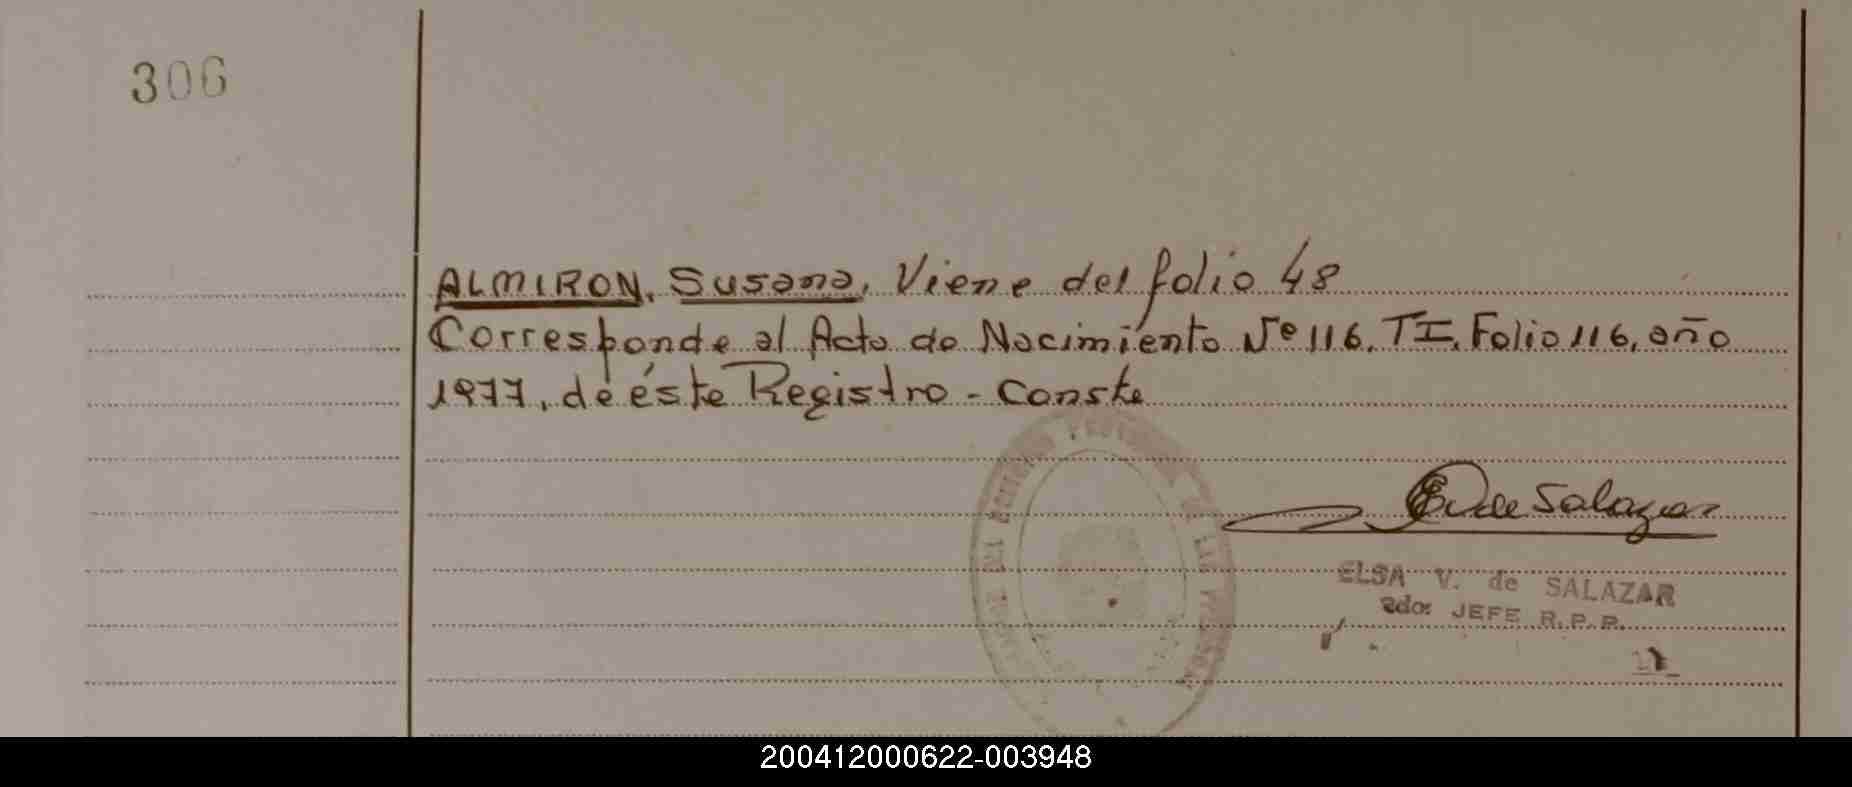 306
ALMIRON, Susana, Viene del folio 48
Corresponde al Acta de Nacimiento Nº 116, TI, Folio 116, año
1977, de éste Registro - Conste
EV de Salazar
ELSA V. de SALAZAR
2do. JEFE R.P.P.
200412000622-003948